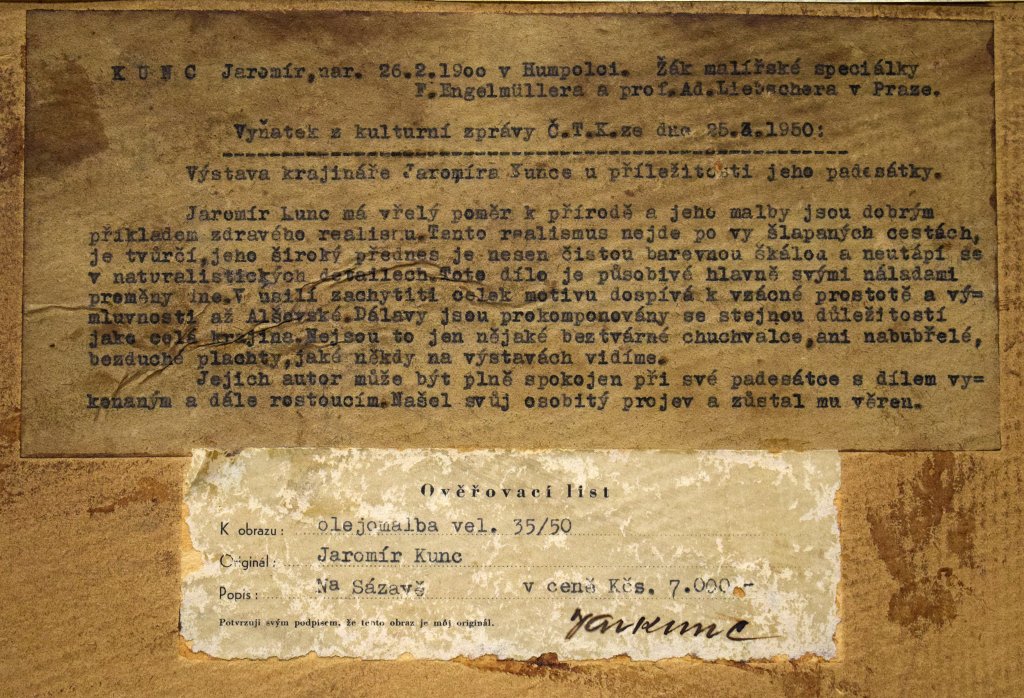 K U N C Jaromír,nar. 26.2.19oo v Humpolci. Žák malířské speciálky
F.Engelmüllera a prof.Ad.Liebschera v Praze.
Vyňatek z kulturní zprávy Č.T.K.ze dne 25.3.1950:
Výstava krajináře Jaromíra Kunce u příležitosti jeho padesátky.
Jaromír Kunc má vřelý poměr k přírodě a jeho malby jsou dobrým
příkladem zdravého realismu.Tento realismus nejde po vy šlapaných cestách,
je tvůrčí,jeho široký přednes je nesen čistou barevnou škálou a neutápí se
v naturalistických detailech.Toto dílo je působivé hlavně svými náladami
proměny dne.V úsilí zachytiti celek motivu dospívá k vzácné prostotě a vý=
mluvnosti až Alšovské.Dálavy jsou prokomponovány se stejnou důležitostí
jako celá krajina.Nejsou to jen nějaké beztvárné chuchvalce,ani nabubřelé,
bezduché plachty,jaké někdy na výstavách vidíme.
Jejich autor může být plně spokojen při své padesátce s dílem vy=
konaným a dále rostoucím.Našel svůj osobitý projev a zůstal mu věren.
Ověřovací list
K obrazu: olejomalba vel. 35/50
Originál: Jaromír Kunc
Popis: Na Sázavě v ceně Kčs. 7.000.-
Potvrzuji svým podpisem, že tento obraz je můj originál.
Jar Kunc